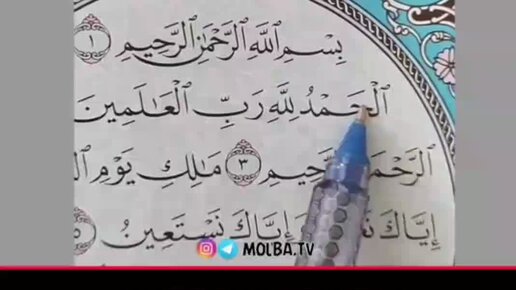 بِسْمِ ٱللَّهِ ٱلرَّحْمَٰنِ ٱلرَّحِيمِ ١
ٱلْحَمْدُ لِلَّهِ رَبِّ ٱلْعَٰلَمِينَ
ٱلرَّحْمَ حِيمِ ٣ مَٰلِكِ يَوْمِ
إِيَّاكَ وَإِيَّاكَ نَسْتَعِينُ ٥
MOLBA.TV